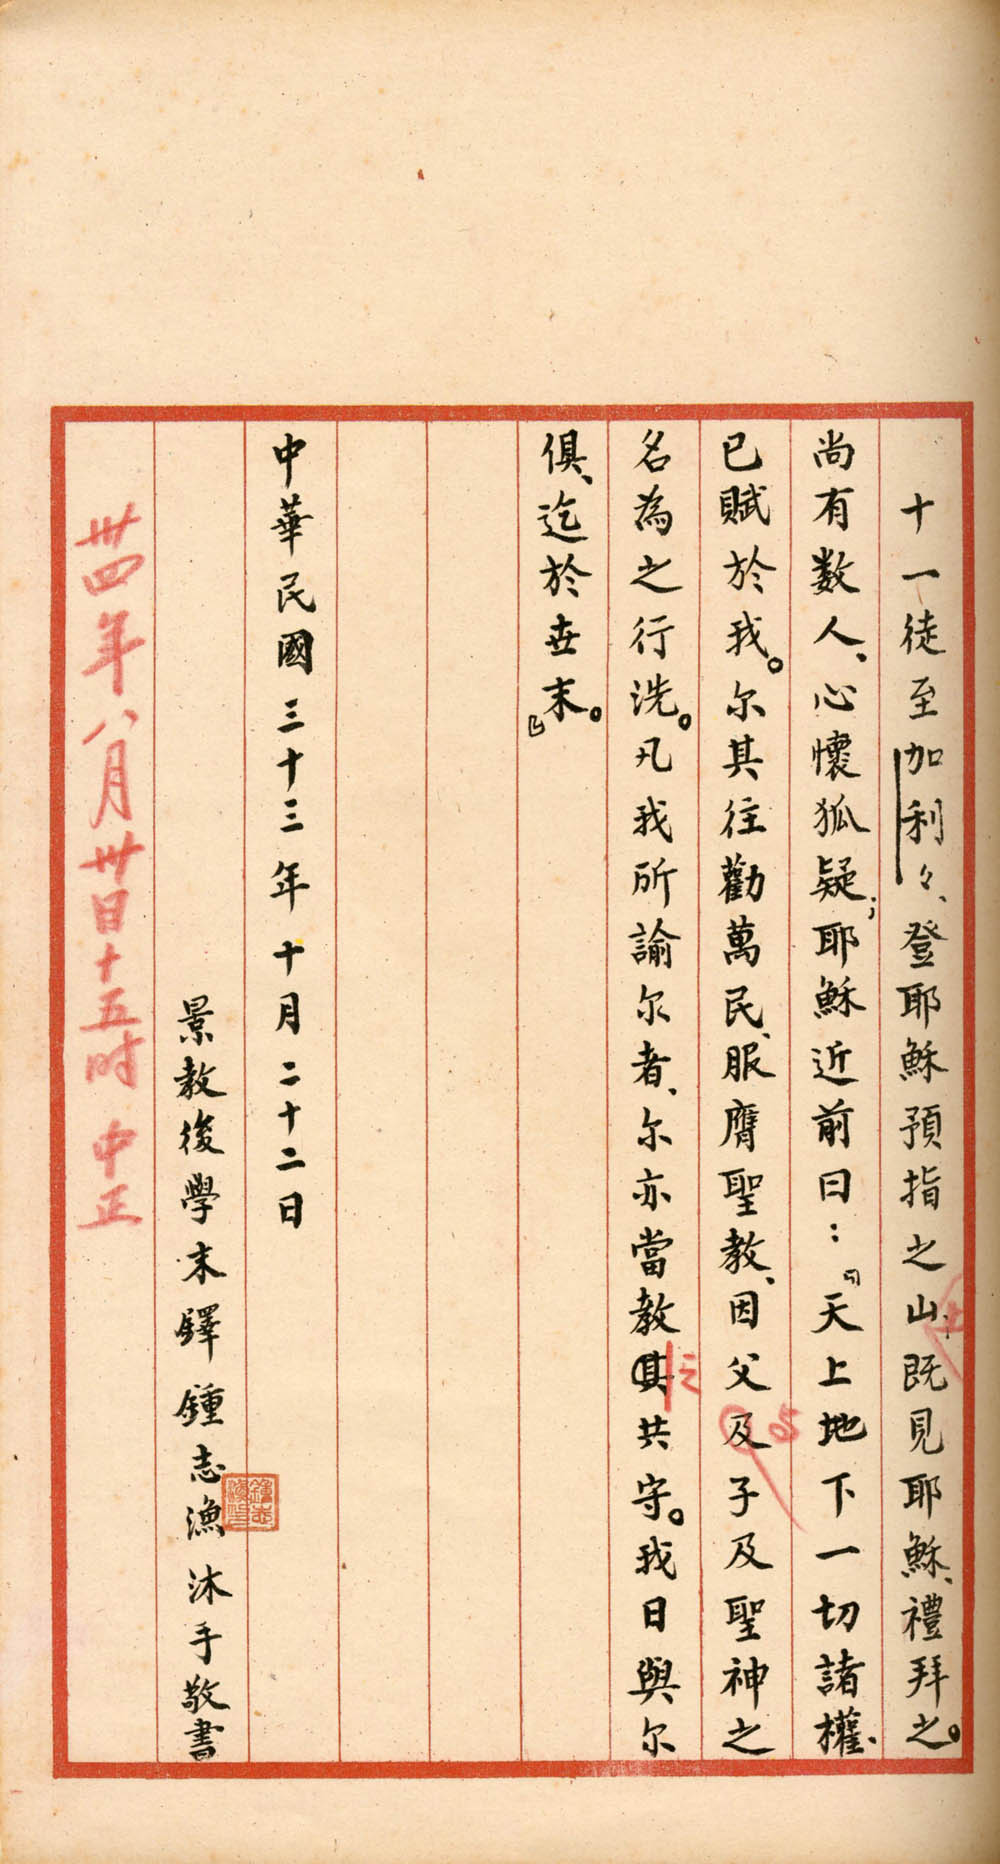 十一徒至加利々、登耶穌預指之山、既見耶穌、禮拜之。
尚有数人、心懷狐疑；耶穌近前曰：『天上地下一切諸權、
已賦於我。尔其往勸萬民、服膺聖教、因父及子及聖神之
名為之行洗。凡我所諭尔者、尔亦當教其共守。我日與尔
俱、迄於世末。』
之
与
中華民國三十三年十月二十二日
景教後學末鐸 鍾志漁沐手敬書
卅四年八月卅日十五时 中正